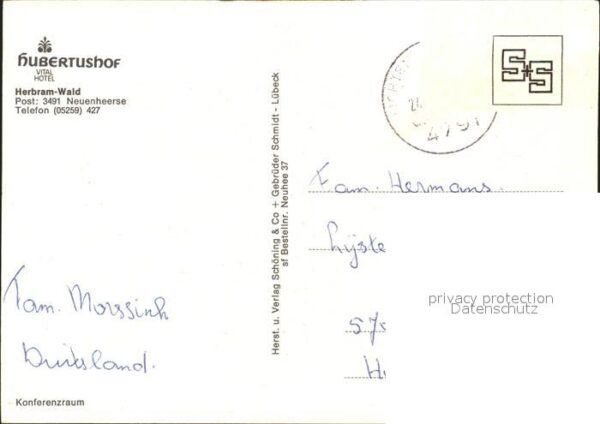 hubertushof
VITAL
HOTEL
Herbram-Wald
Post: 3491 Neuenheerse
Telefon (05259) 427
S+S
4791
Herst. u. Verlag Schöning & Co + Gebrüder Schmidt - Lübeck
sf Bestellnr. Neuhee 37
Fam. Hermans.
Lijste
57
H
privacy protection
Datenschutz
Fam. Morssink
Duitsland.
Konferenzraum